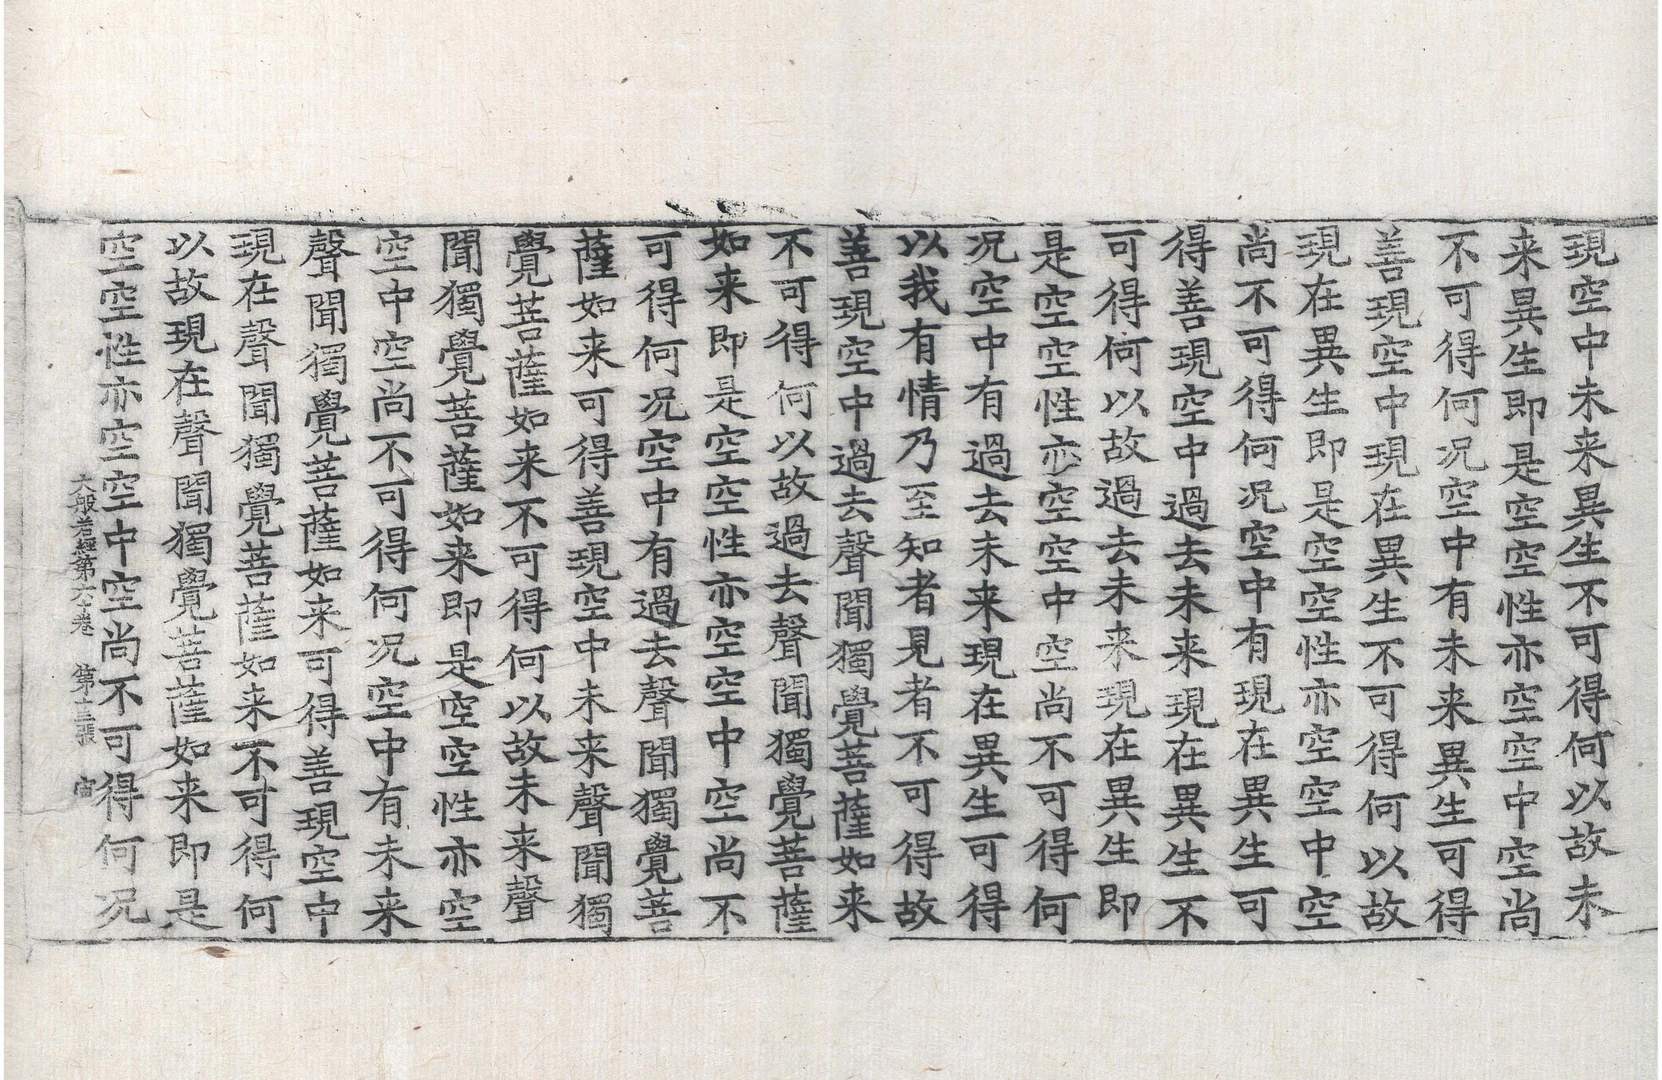 現空中未来異生不可得何以故未
来異生即是空空性亦空空中空尚
不可得何况空中有未来異生可得
善現空中現在異生不可得何以故
現在異生即是空空性亦空空中空
尚不可得何况空中有現在異生可
得善現空中過去未来現在異生不
可得何以故過去未来現在異生即
是空空性亦空空中空尚不可得何
况空中有過去未来現在異生可得
以我有情乃至知者見者不可得故
善現空中過去聲聞獨覺菩薩如来
不可得何以故過去聲聞獨覺菩薩
如来即是空空性亦空空中空尚不
可得何况空中有過去聲聞獨覺菩
薩如来可得善現空中未来聲聞獨
覺菩薩如来不可得何以故未来聲
聞獨覺菩薩如来即是空空性亦空
空中空尚不可得何况空中有未来
聲聞獨覺菩薩如来可得善現空中
現在聲聞獨覺菩薩如来不可得何
以故現在聲聞獨覺菩薩如来即是
空空性亦空空中空尚不可得何况
大般若經第六十卷 第十三張 宙